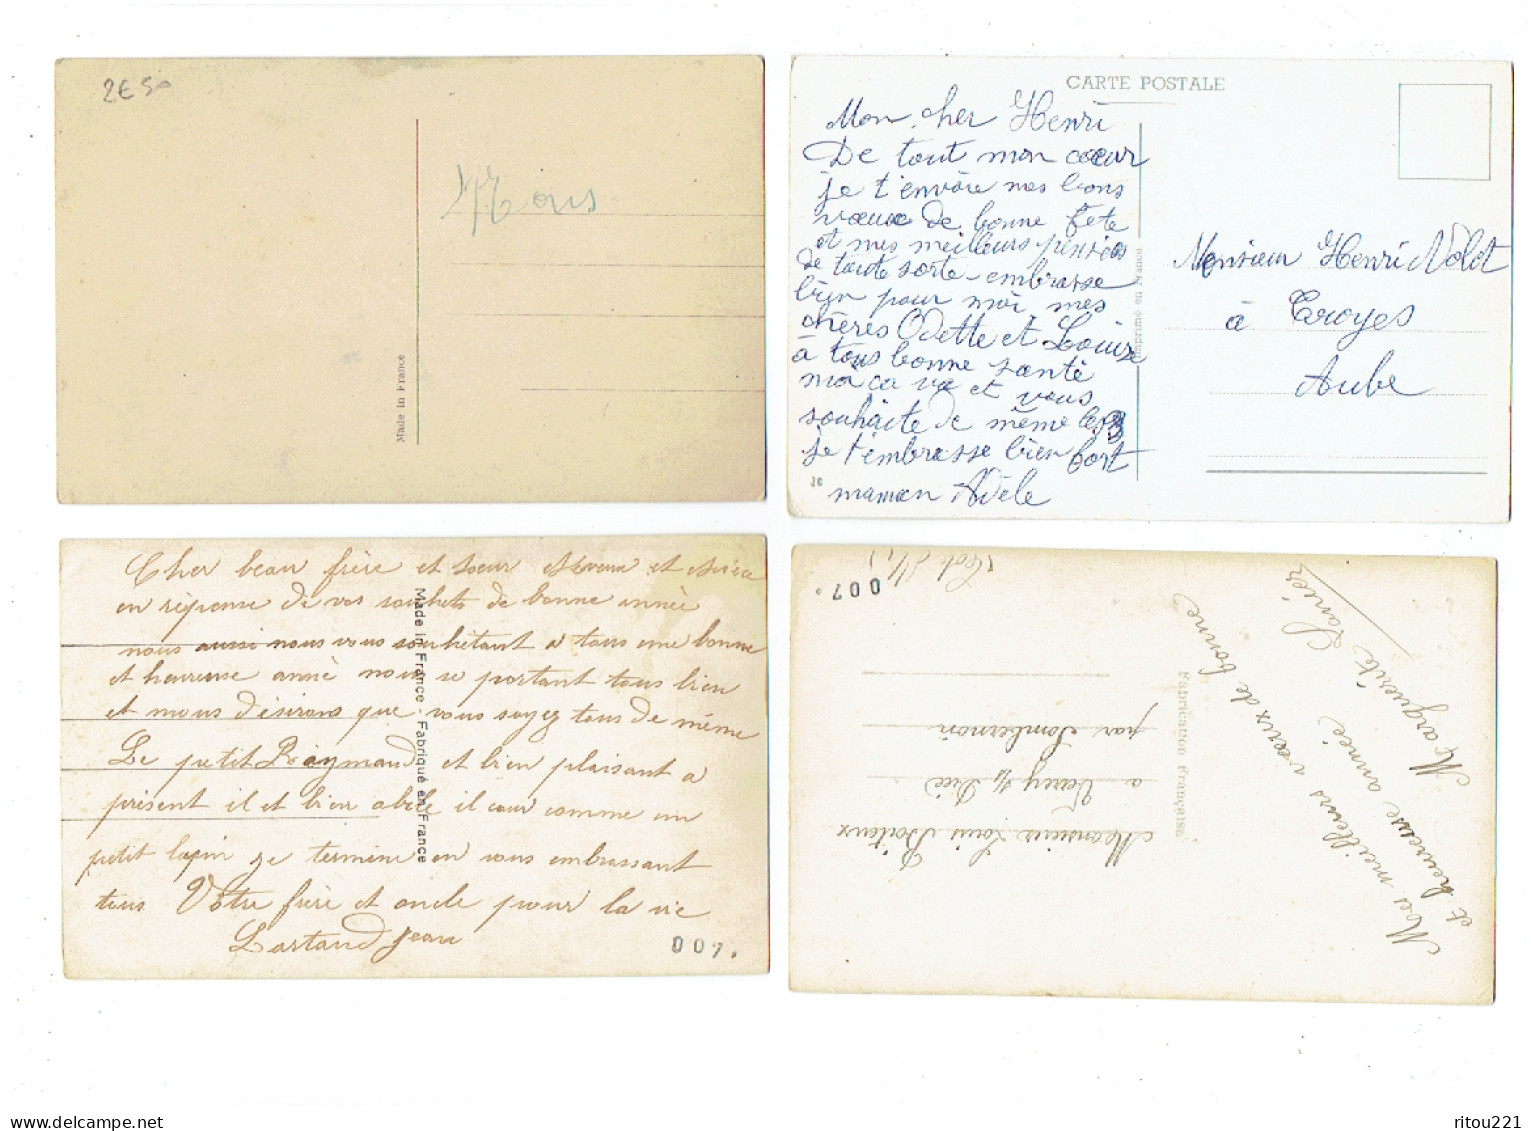 2€50
Made in France
CARTE POSTALE
Mon cher Henri
De tout mon cœur
je t'envoie mes bons
vœux de bonne fête
et mes meilleurs pensées
de toute sorte - embrasse
bien pour moi mes
chères Odette et Louise
à tous bonne santé
moi ca va et vous
souhaite de même les 3
je t'embrasse bien fort
maman Adèle
JC
Imprimé en France
Monsieur Henri Nolot
à Troyes
Aube
Cher beau frère et sœur et
en réponse de vos souhets de bonne année
nous aussi nous vous souhetant a tous une bonne
et heureuse anné nous se portant tous bien
et nous désirons que vous soyez tous de même
Le petit Raymond et bien plaisant a
présent il et bien abile il cour comme un
petit lapin je termine en vous embrassant
tous Votre frère et oncle pour la vie
Lartaud Jean
Made in France - Fabriqué en France
007.
Mes meilleurs vœux de bonne
et heureuse année
Marguerite
Fabrication Française
Monsieur Louis
a Verrey s/s Drée
par Sombernon
007.
delcampe.net
ritou221